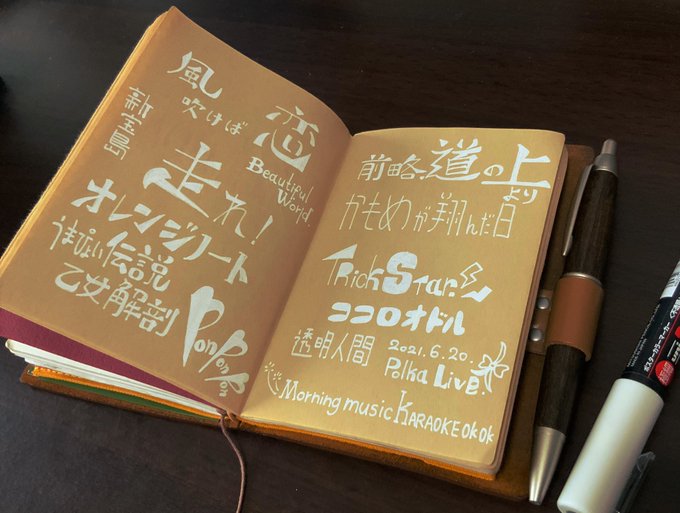 風
吹けば
恋
新宝島
Beautiful
World.
走れ!
オレンジノート
うまぴょい伝説
乙女解剖
PonPonPon
前略、道の上
より
かもめが翔んだ日
TRickStar!
ココロオドル
透明人間
2021.6.20.
Polka Live.
Morning music KARAOKE okok